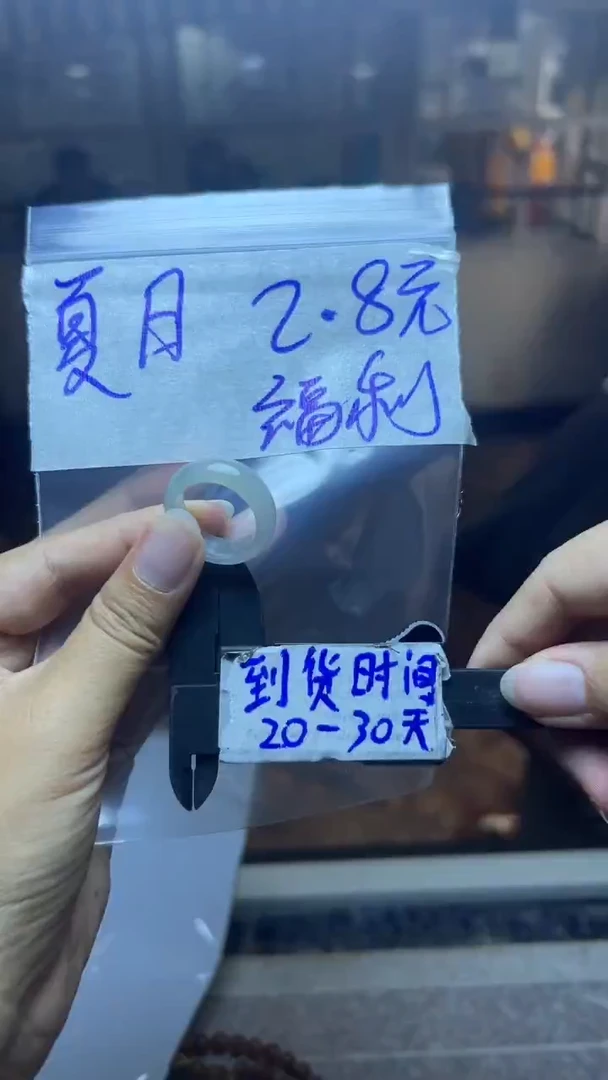 夏月 2.8元
福利
到货时间
20-30天